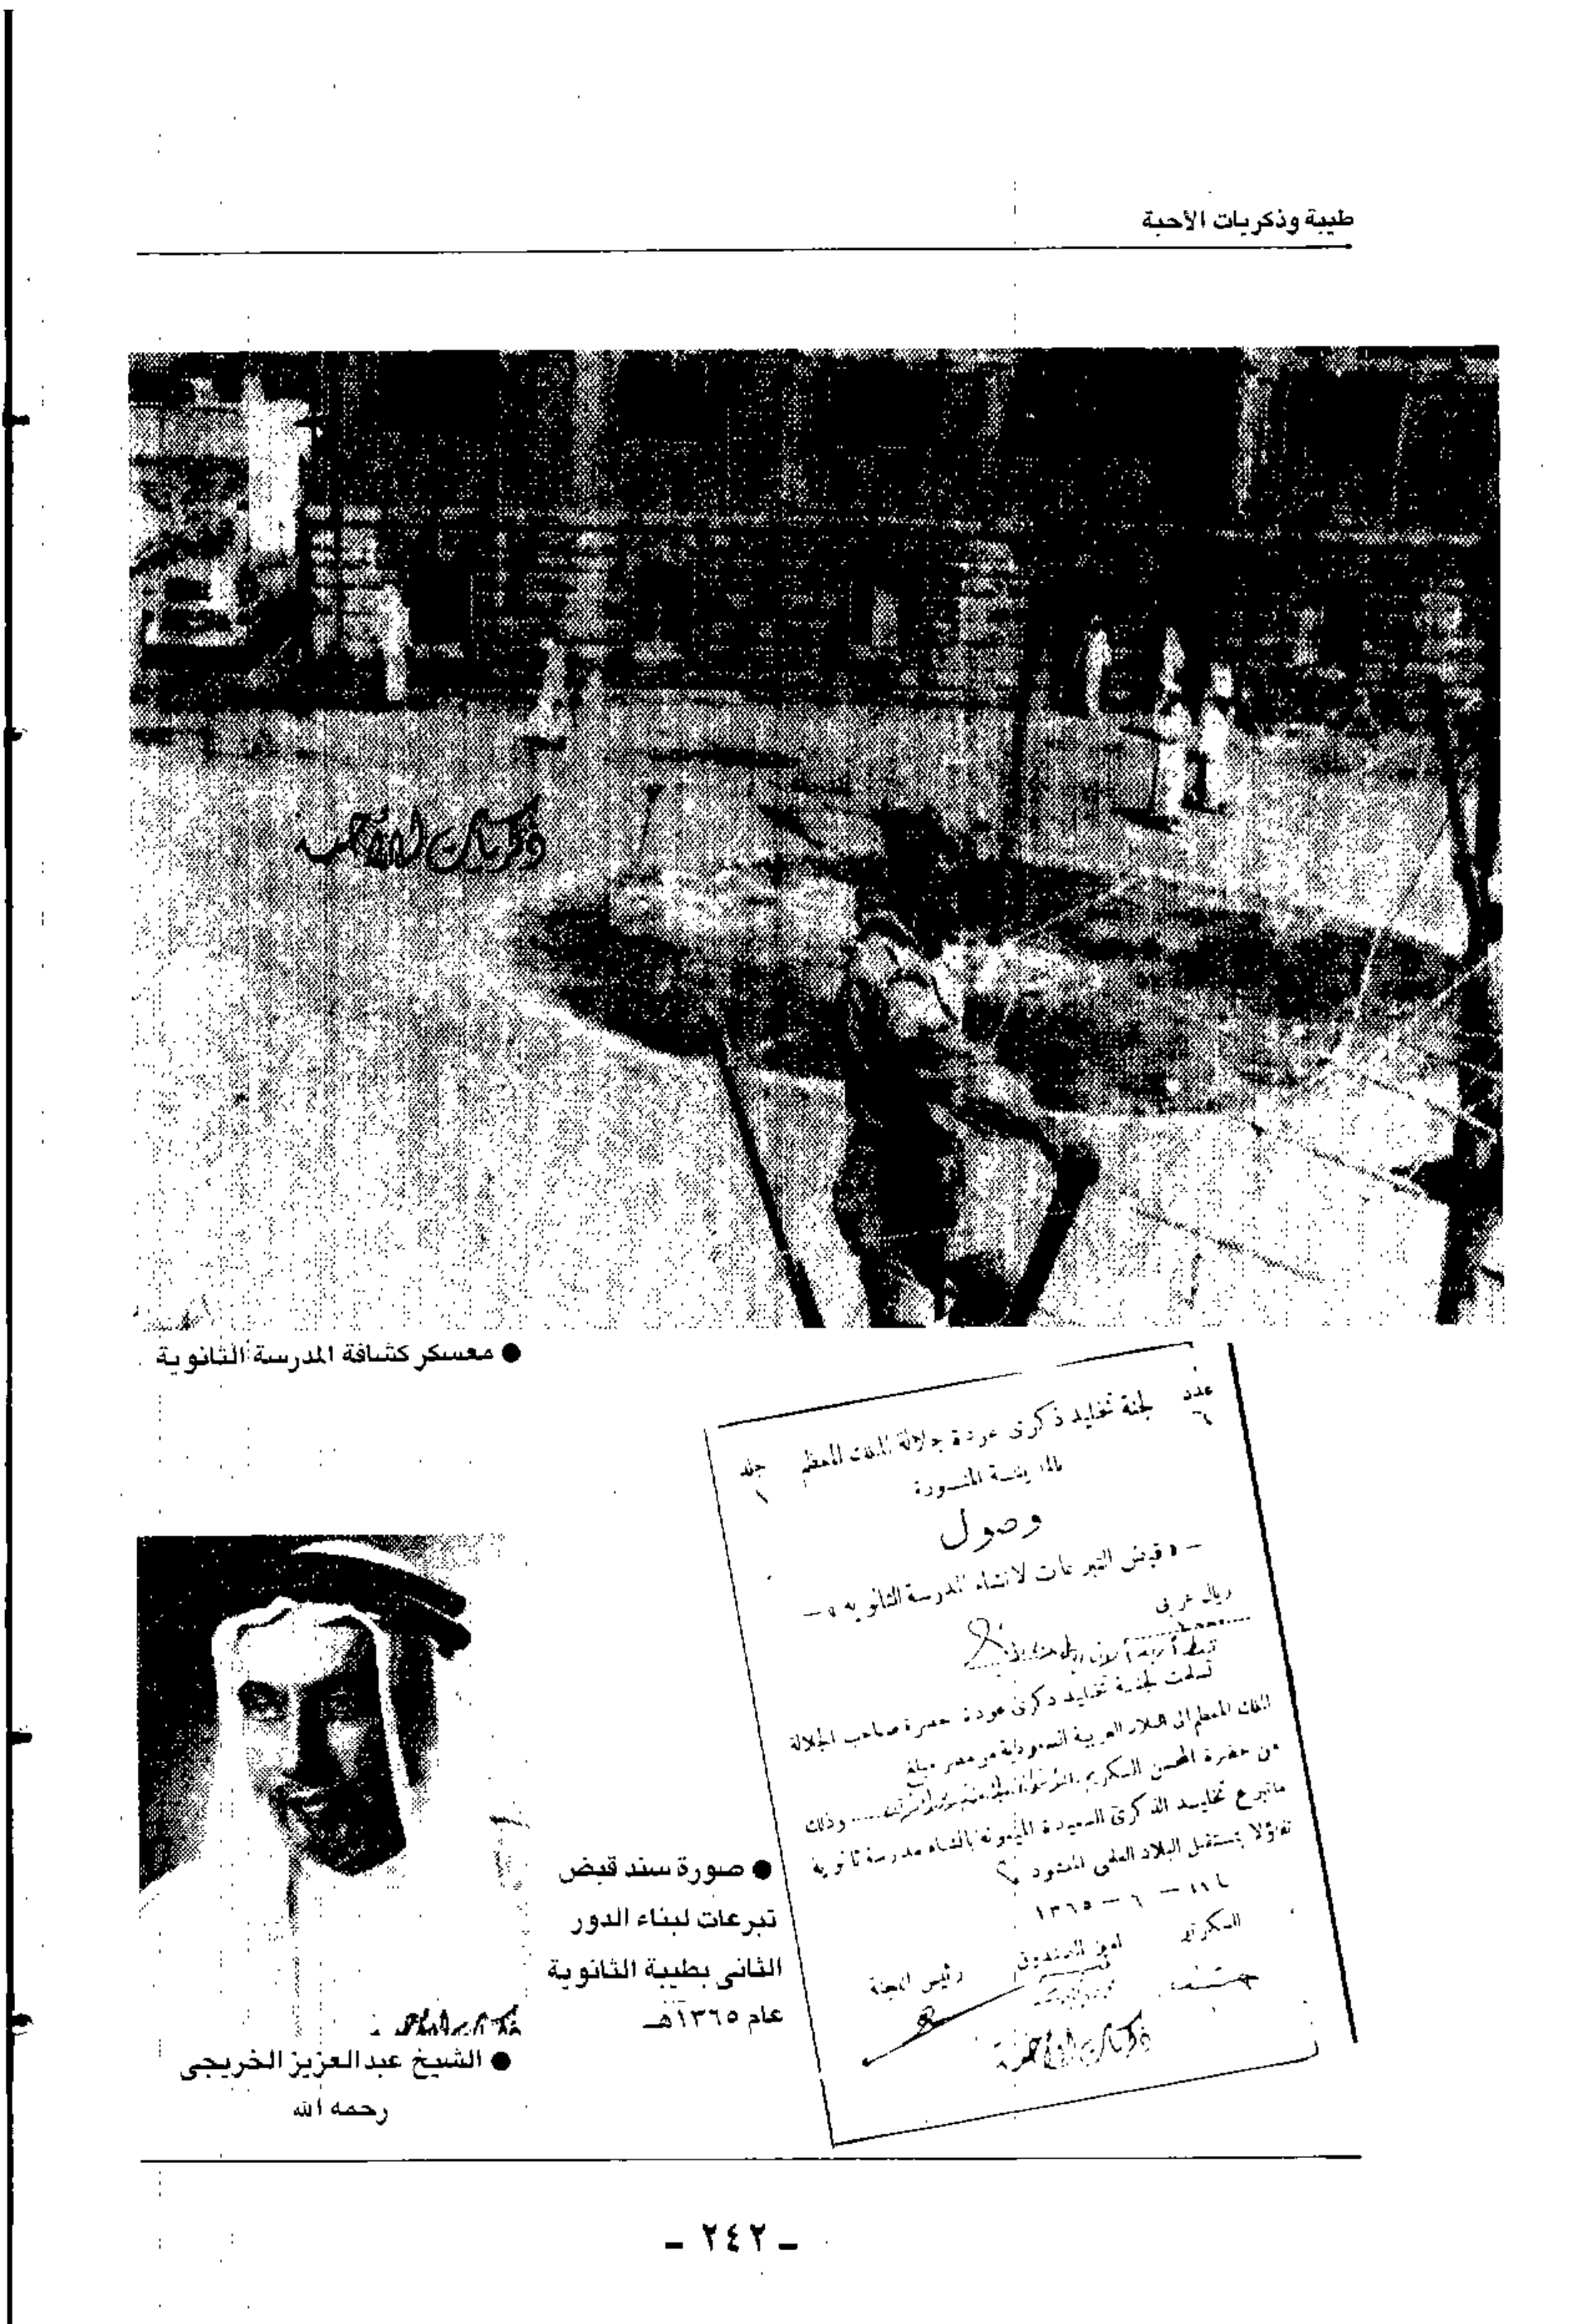 طيبة وذكريات الأحبة
ذكريات الأحبة
● معسكر كشافة المدرسة الثانوية
عدد ٦
لجنة تخليد ذكرى عودة جلالة الملك المعظم
جلد ١
بالمدينة المنورة
وصول
— « قبض التبرعات لانشاء المدرسة الثانوية » —
ريال عربى
فقط
تسلمت لجنة تخليد ذكرى عودة حضرة صاحب الجلالة
الملك المعظم الى البلاد العربية السعودية من مصر مبلغ
من حضرة المحسن الكريم وذلك
ماتبرع تخليد الذكرى السعيدة الميمونة بانشاء مدرسة ثانوية
تفاؤلا بمستقبل البلاد العلمى المنشود
— ٦ — ١٣٦٥
السكرتير
امين الصندوق
رئيس اللجنة
ذكريات الأحبة
● صورة سند قبض
تبرعات لبناء الدور
الثانى بطيبة الثانوية
عام ١٣٦٥هـ
ذكريات الأحبة
● الشيخ عبدالعزيز الخريجى
رحمه الله
ـ ٢٤٢ ـ